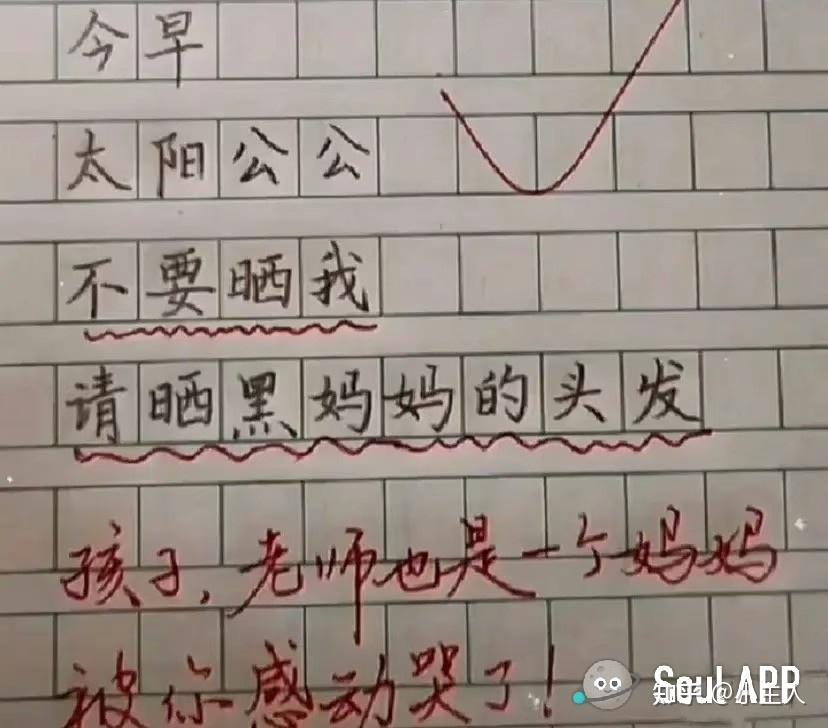 今早
太阳公公
不要晒我
请晒黑妈妈的头发
孩子，老师也是一个妈妈
被你感动哭了！
Soul APP
知乎 @小主人